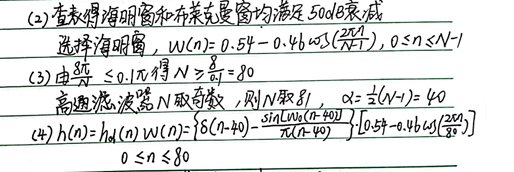 (2) 查表得海明窗和布莱克曼窗均满足50dB衰减
选择海明窗, w(n)=0.54-0.46cos(\frac{2πn}{N-1}), 0≤n≤N-1
(3) 由\frac{8π}{N}≤0.1π得N≥\frac{8}{0.1}=80
高通滤波器N取奇数,则N取81, α=\frac{1}{2}(N-1)=40
(4) h(n)=h_d(n)w(n)={δ(n-40)-\frac{sin[w_0(n-40)]}{π(n-40)}}·[0.54-0.46cos(\frac{2πn}{80})]
0≤n≤80